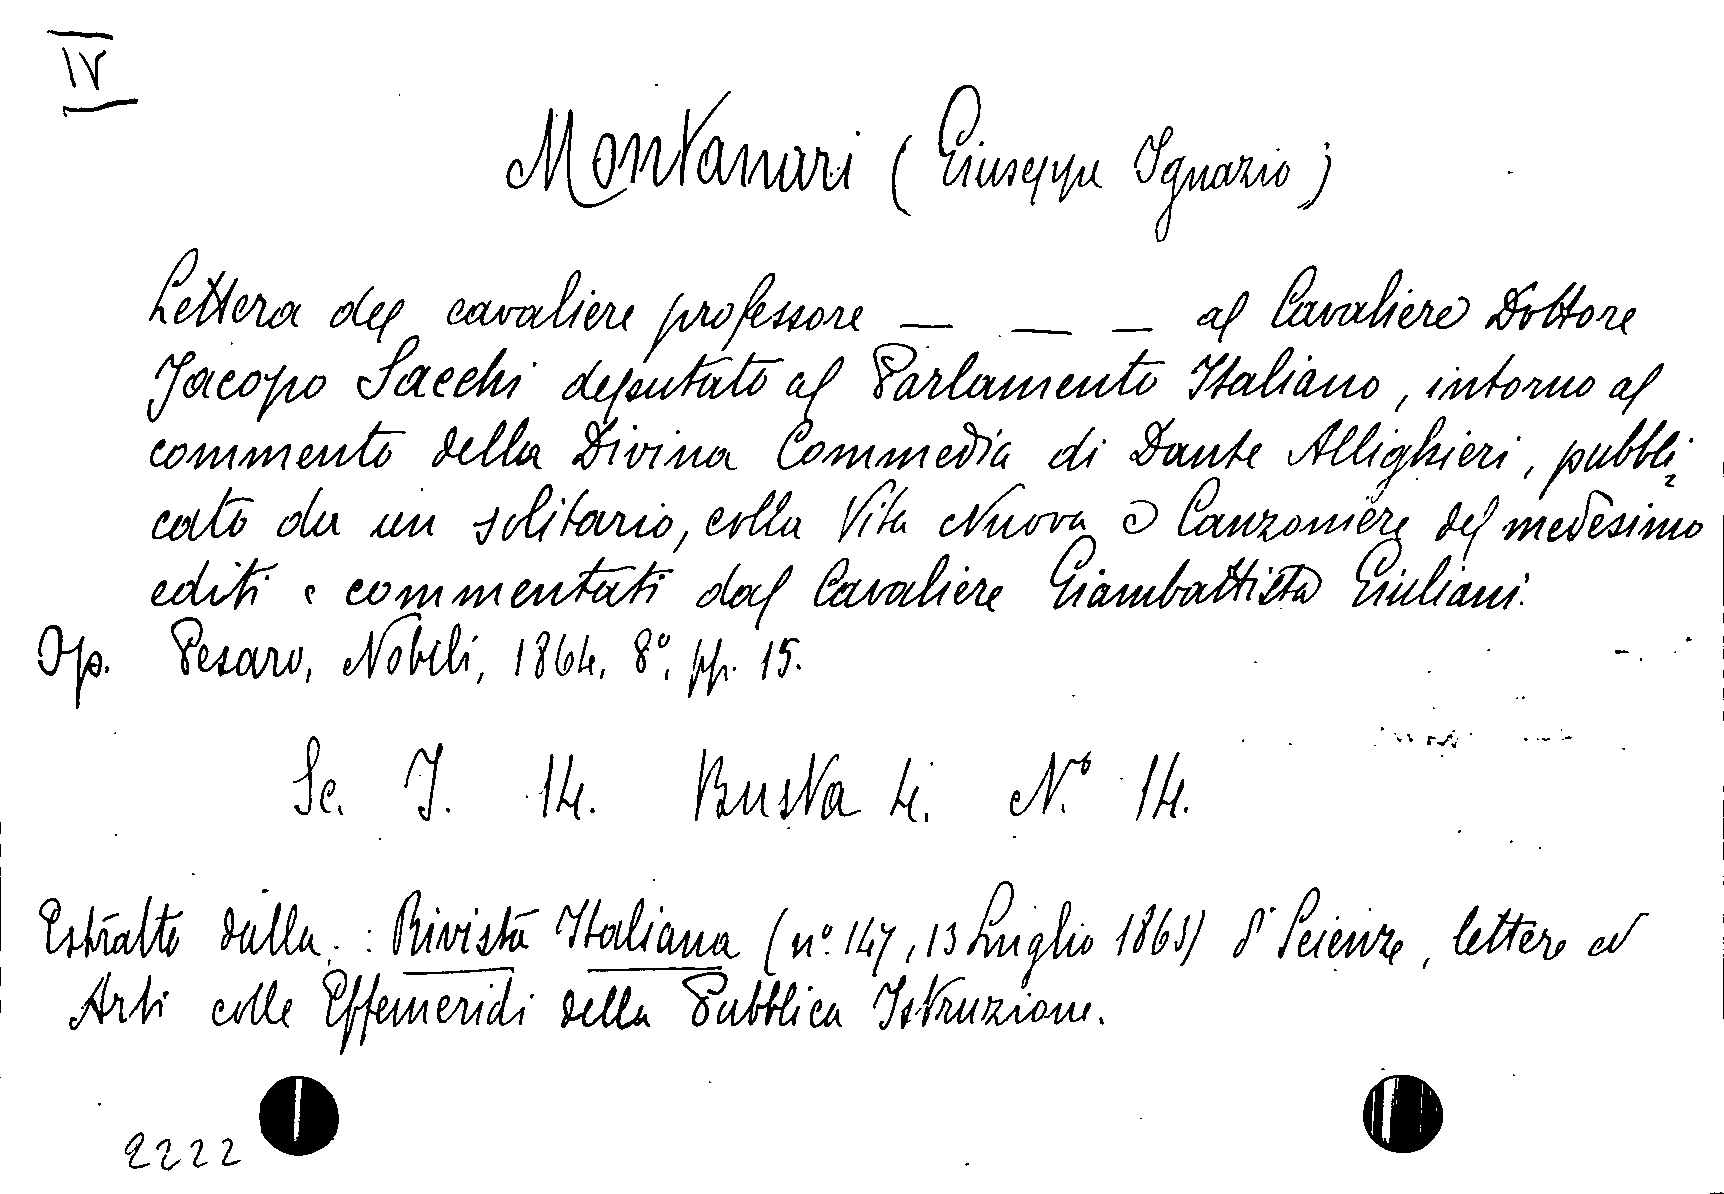 IV
Montanari (Giuseppe Ignazio)
Lettera del cavaliere professore — — — al Cavaliere Dottore
Jacopo Sacchi deputato al Parlamento Italiano, intorno al
commento della Divina Commedia di Dante Allighieri, pubbli
cato da un solitario, colla Vita Nuova e Canzoniere del medesimo
editi e commentati dal Cavaliere Giambattista Giuliani.
Op. Pesaro, Nobili, 1864, 8°, pp. 15.
Sc. I. 14. Busta 4. N.° 14.
Estratto dalla : Rivista Italiana (n.° 147, 13 Luglio 1863) di Scienze, lettere ed
Arti colle Effemeridi della Pubblica Istruzione.
2222